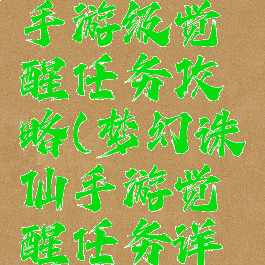 手游级觉
醒任务攻
略(梦幻诛
仙手游觉
醒任务详